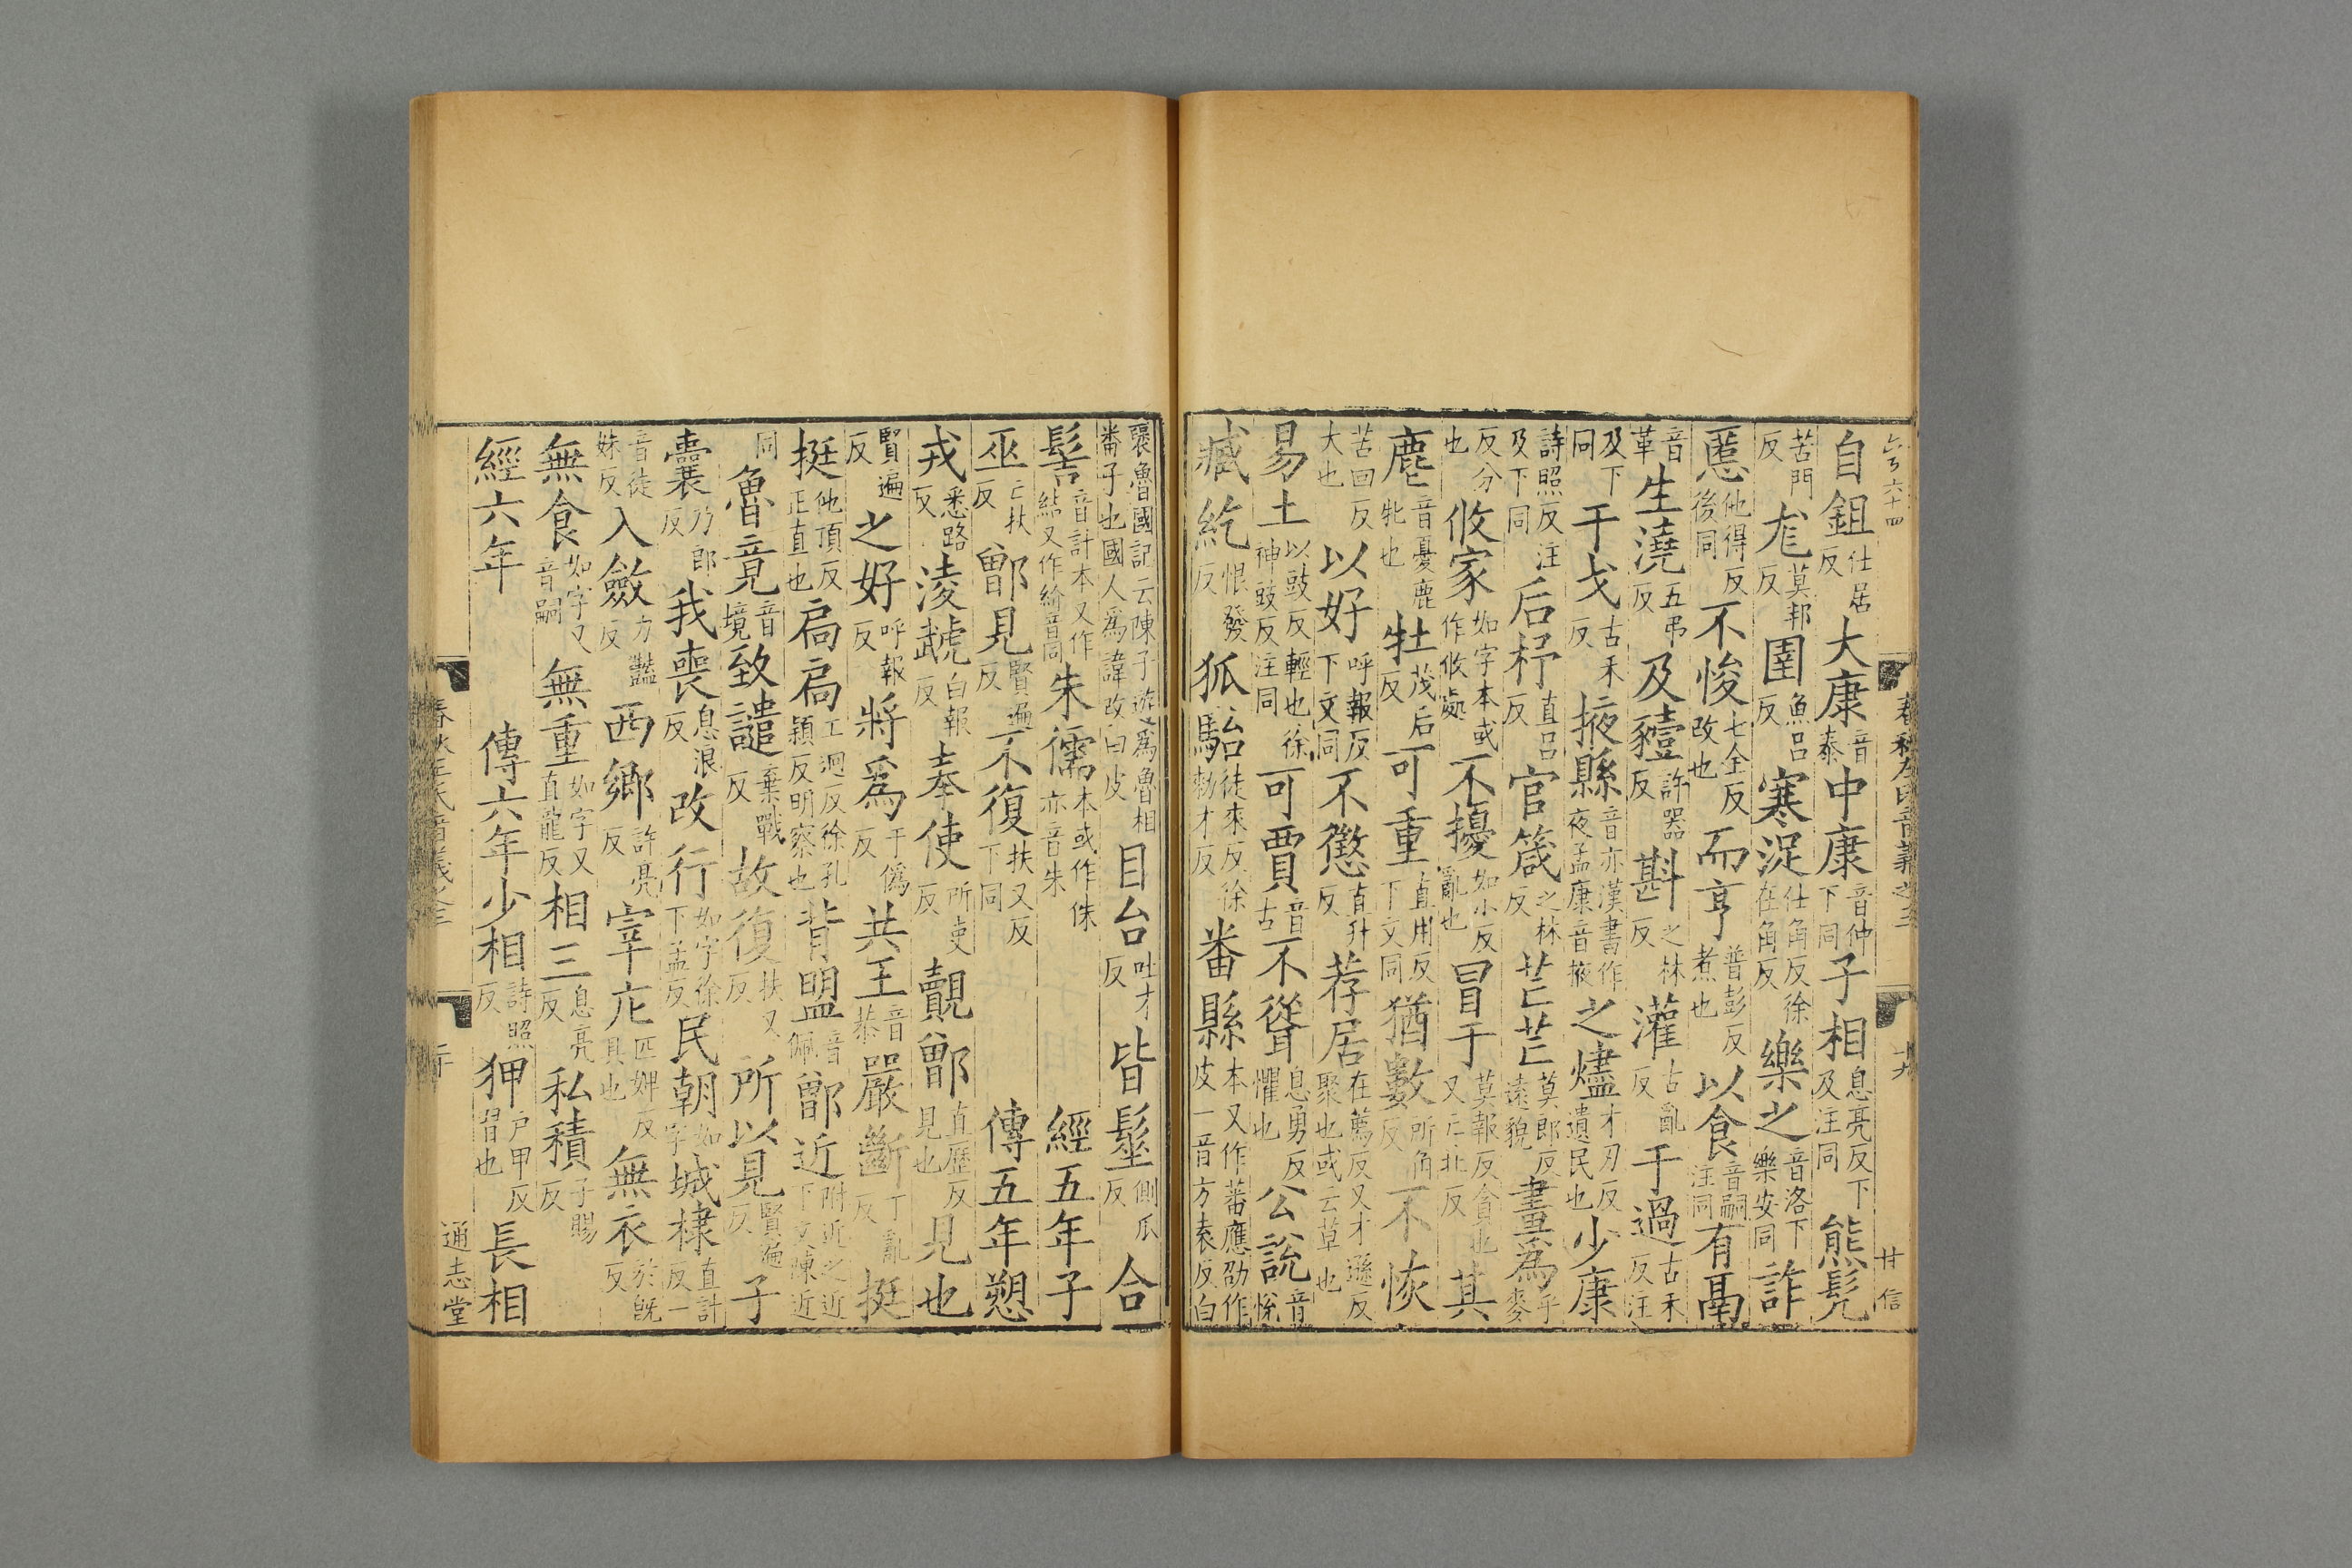 自鉏仕居反大康音泰中康音仲下同子相息亮反下及注同熊髡
苦門反尨莫邦反圉魚呂反寒浞仕角反徐在角反樂之音洛下樂安同詐
慝他得反後同不悛七全反改也而亨普彭反煮也以食音嗣注同有鬲
音革生澆五弔反及豷許器反斟之林反灌古亂反于過古禾反注
及下同干戈古禾反掖縣音亦漢書作夜孟康音掖之燼才刃反遺民也少康
詩照反注及下同后杼直呂反官箴之林反芒芒莫郎反遠貌畫為乎麥
反分也攸家如字本或作攸處不擾如小反亂也冒于莫報反貪也又亡北反其
麀音憂鹿牝也牡茂后反可重直用反下文同猶數所角反不恢
苦回反大也以好呼報反下文同不懲直升反荐居在薦反又才遜反聚也或云草也
易土以豉反輕也徐神豉反注同可賈音古不聳息勇反懼也公說音悅
臧紇恨發反狐駘徒來反徐勑才反番縣本又作蕃應劭作皮一音方袁反白
襃魯國記云陳子游為魯相番子也國人為諱改曰皮目台吐才反皆髽側瓜反合
髻音計本又作結又作紒音同朱儒本或作侏亦音朱經五年子
巫亡扶反鄫見賢遍反不復扶又反下同傳五年愬
戎悉路反淩虣白報反奉使所吏反覿鄫直歷反見也見也
賢遍反之好呼報反將為于偽反共王音恭嚴斷丁亂反挺
挺他頂反正直也扃扃工迥反徐孔穎反明察也背盟音佩鄫近附近之近下文陳近
同魯竟音境致譴棄戰反故復扶又反所以見賢遍反子
囊乃郎反我喪息浪反改行如字徐下孟反民朝如字城棣直計反一
音徒妹反入斂力豔反西鄉許亮反宰庀匹婢反具也無衣於既反
無食如字又音嗣無重如字又直龍反相三息亮反私積子賜反
經六年傳六年少相詩照反狎戶甲反習也長相
通志堂